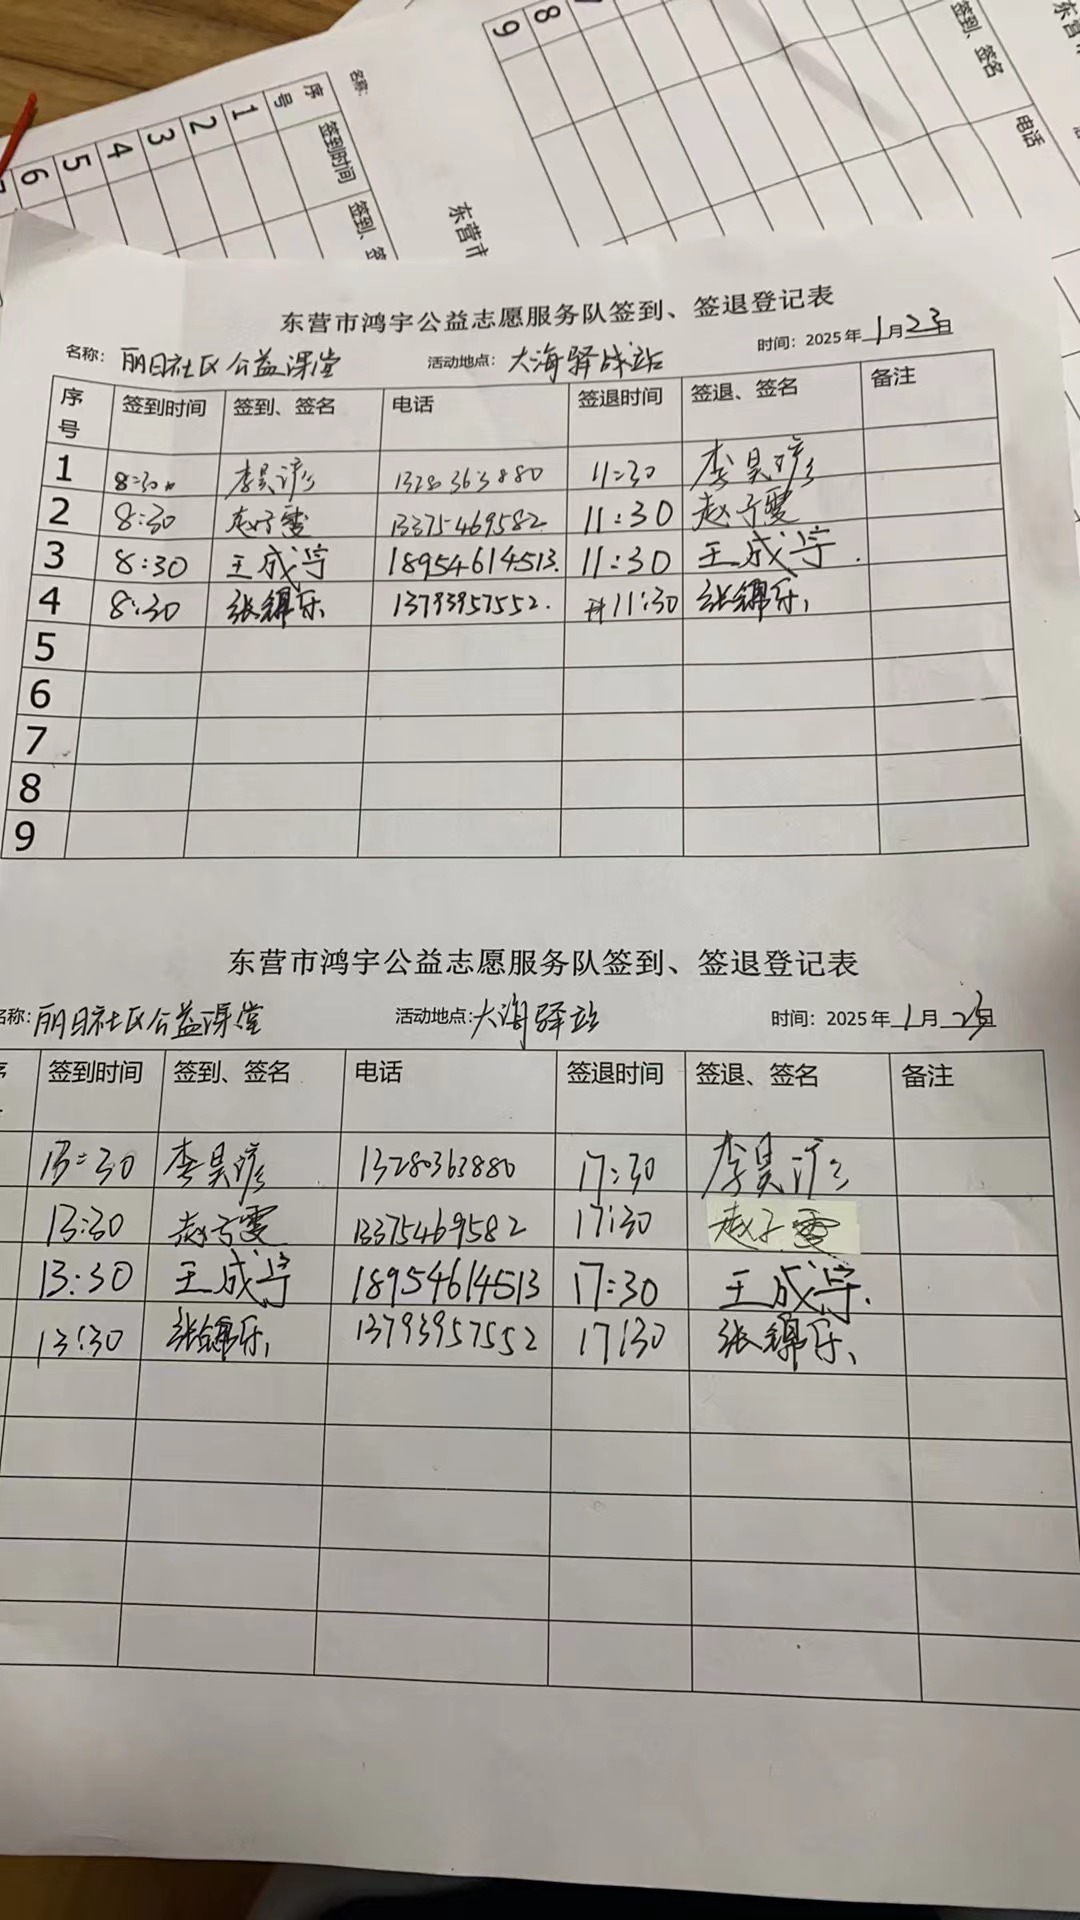 9 8
签到、签名
电话
名称:
序号 签到时间 签到、签
1 2 3 4 5 6
东营市
东营市鸿宇公益志愿服务队签到、签退登记表
名称: 丽日社区公益课堂 活动地点: 大海驿站 时间: 2025年1月23日
序号 签到时间 签到、签名 电话 签退时间 签退、签名 备注
1 8:30 李昊 13280363880 11:30 李昊
2 8:30 赵子雯 13375469582 11:30 赵子雯
3 8:30 王成 18954614513 11:30 王成
4 8:30 张锦乐 13793957552 11:30 张锦乐
5
6
7
8
9
东营市鸿宇公益志愿服务队签到、签退登记表
名称: 丽日社区公益课堂 活动地点: 大海驿站 时间: 2025年1月23日
签到时间 签到、签名 电话 签退时间 签退、签名 备注
13:30 李昊 13280363880 17:30 李昊
13:30 赵子雯 13375469582 17:30 赵子雯
13:30 王成 18954614513 17:30 王成
13:30 张锦乐 13793957552 17:30 张锦乐